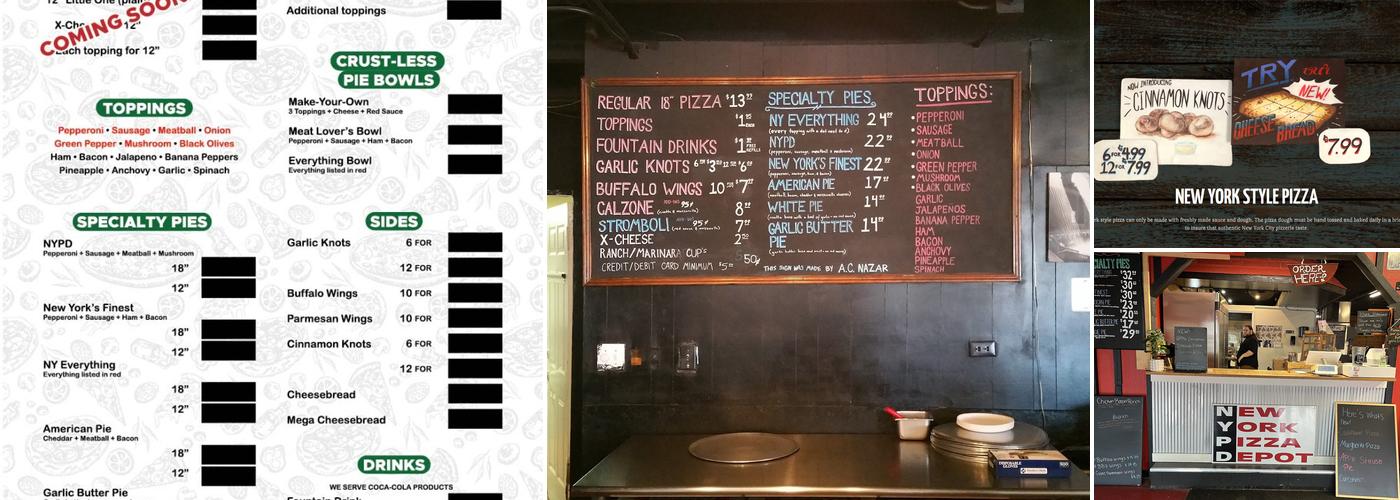 12" Little One (plain
X-Che 12"
COMING SOON
Each topping for 12"
TOPPINGS
Pepperoni • Sausage • Meatball • Onion
Green Pepper • Mushroom • Black Olives
Ham • Bacon • Jalapeno • Banana Peppers
Pineapple • Anchovy • Garlic • Spinach
SPECIALTY PIES
NYPD
Pepperoni + Sausage + Meatball + Mushroom
18"
12"
New York's Finest
Pepperoni + Sausage + Ham + Bacon
18"
12"
NY Everything
Everything listed in red
18"
12"
American Pie
Cheddar + Meatball + Bacon
18"
12"
Garlic Butter Pie
Additional toppings
CRUST-LESS
PIE BOWLS
Make-Your-Own
3 Toppings + Cheese + Red Sauce
Meat Lover's Bowl
Pepperoni + Sausage + Ham + Bacon
Everything Bowl
Everything listed in red
SIDES
Garlic Knots 6 FOR
12 FOR
Buffalo Wings 10 FOR
Parmesan Wings 10 FOR
Cinnamon Knots 6 FOR
12 FOR
Cheesebread
Mega Cheesebread
DRINKS
WE SERVE COCA-COLA PRODUCTS
Fountain Drink
REGULAR 18" PIZZA $13
TOPPINGS $1
FOUNTAIN DRINKS $1 FREE REFILLS
GARLIC KNOTS 6 FOR $3 12 FOR $6
BUFFALO WINGS 10 FOR $7
CALZONE 8
STROMBOLI 7
X-CHEESE 2
RANCH/MARINARA CUPS 50¢
CREDIT/DEBIT CARD MINIMUM $5
SPECIALTY PIES
NY EVERYTHING 24
NYPD 22
(pepperoni, sausage, meatball & mushroom)
NEW YORK'S FINEST 22
(pepperoni, sausage, ham & bacon)
AMERICAN PIE 17
WHITE PIE 14
GARLIC BUTTER 14
PIE
THIS SIGN WAS MADE BY A.C. NAZAR
TOPPINGS:
• PEPPERONI
• SAUSAGE
• MEATBALL
• ONION
• GREEN PEPPER
• MUSHROOM
• BLACK OLIVES
GARLIC
JALAPENOS
BANANA PEPPER
HAM
BACON
ANCHOVY
PINEAPPLE
SPINACH
NOW INTRODUCING
CINNAMON KNOTS
6 FOR $4.99
12 FOR 7.99
TRY our
NEW!
CHEESE BREAD
$7.99
NEW YORK STYLE PIZZA
rk style pizza can only be made with freshly made sauce and dough. The pizza dough must be hand tossed and baked daily in a bri
to insure that authentic New York City pizzeria taste.
ORDER
HERE!
CIALTY PIES
NEW
YORK
PIZZA
DEPOT
Here's What's
New!
Margherita Pizza
Pie